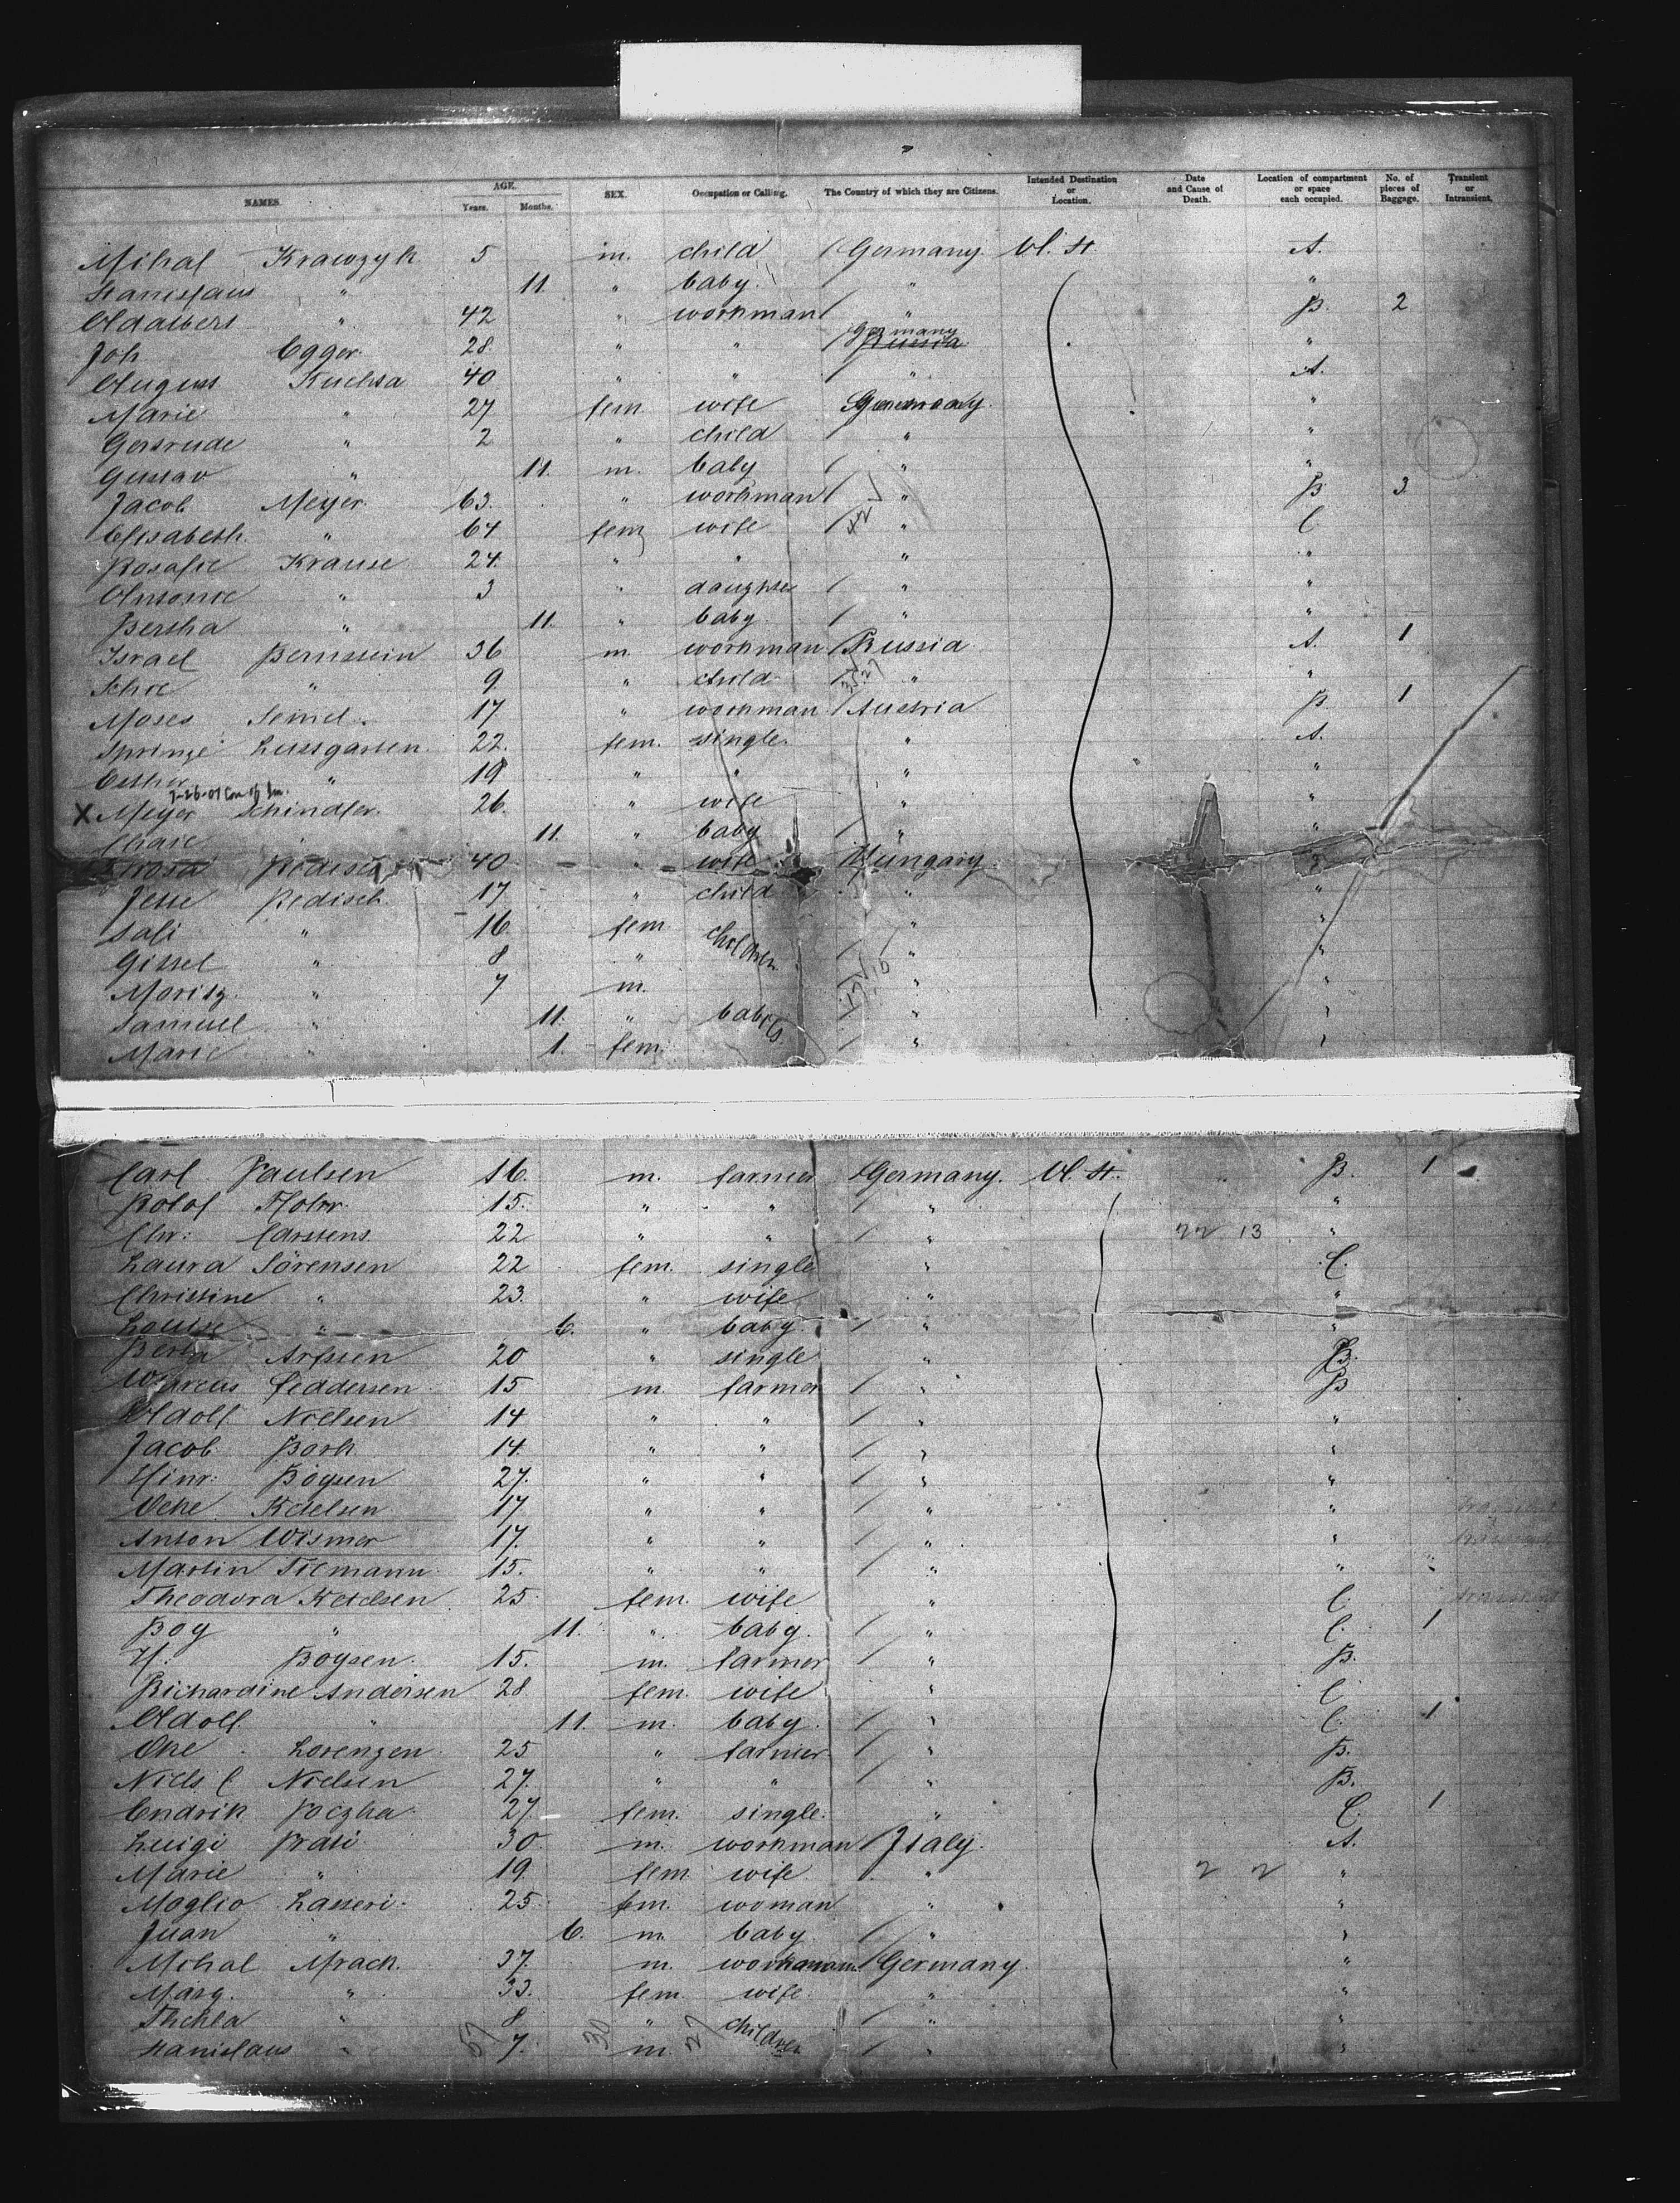 NAMES. AGE. Years. Months. SEX. Occupation or Calling. The Country of which they are Citizens. Intended Destination or Location. Date and Cause of Death. Location of compartment or space each occupied. No. of pieces of Baggage. Transient or Intransient.
Mihal Krawzyk 5 m. child Germany. U. St. A.
Stanislaus " 11. " baby. " "
Adalbert " 42 " workman " B. 2
Joh Egger. 28. " " Germany Russia "
August Kuchta 40 " " " A.
Marie " 27 fem. wife Germany. "
Gertrude " 2 " child " "
Gustav " 11. m. baby " "
Jacob Meyer. 63. " workman " B 3
Elisabeth " 64 fem wife " C
Rosalie Krause 24. " " " "
Antonie " 3 " daughter " "
Bertha " 11. " baby. " "
Israel Bernstein 36 m. workman Russia A. 1
" 9 " child " "
Moses 17 " workman Austria B 1
Springe Lustgarten 22. fem. single. " A.
Esther " 19 " " " "
7-26-07
X Meyer Schindler. 26. " wife " "
Chaie " 11. " baby " "
40 " wife Hungary.
Redisch 17 " child " "
Sali " 16 fem " "
Gissel " 8 " children " "
Moritz " 7 m. " "
Samuel " 11. " babies " "
Marie " 1. fem. " "
Carl Paulsen 16. m. farmer Germany. U. St. B. 1
Rolof 15. " " " "
Chr: Carstens 22 " " " 22 13 "
Laura Sörensen 22 fem. single " C.
Christine " 23. " wife " "
Louise " 6. " baby. " "
Berta Arfsten 20 " single " B.
Marcus Feddersen 15 m. farmer " B
Adolf Nielsen 14 " " " "
Jacob Bork 14. " " " "
Hinr: Boysen 27. " " " "
Ketelsen 17 " " " "
Anton Wismer 17. " " " "
Martin Tiemann 15. " " " "
Theodora Ketelsen 25 fem. wife " C.
Boy " 11. " baby. " C. 1
H. Boysen. 15. m. farmer " B.
Richardine Andersen 28 fem. wife " C.
Adolf " 11. m. baby. " C. 1
Lorenzen 25 " farmer " B.
Niels C Nielsen 27. " " " B.
Endrik Poczka 27 fem. single. " C. 1
Luigi Prati 30 m. workman Italy. A.
Marie " 19. fem wife " 2 2 "
Moglio Lasseri. 25. fem. woman " "
Juan " 6. m. baby " "
Mihal Mrack. 37. m. workman Germany. "
Marg. " 33. fem. wife " "
Thekla " 8 " children " "
Stanislaus " 7. m. " "